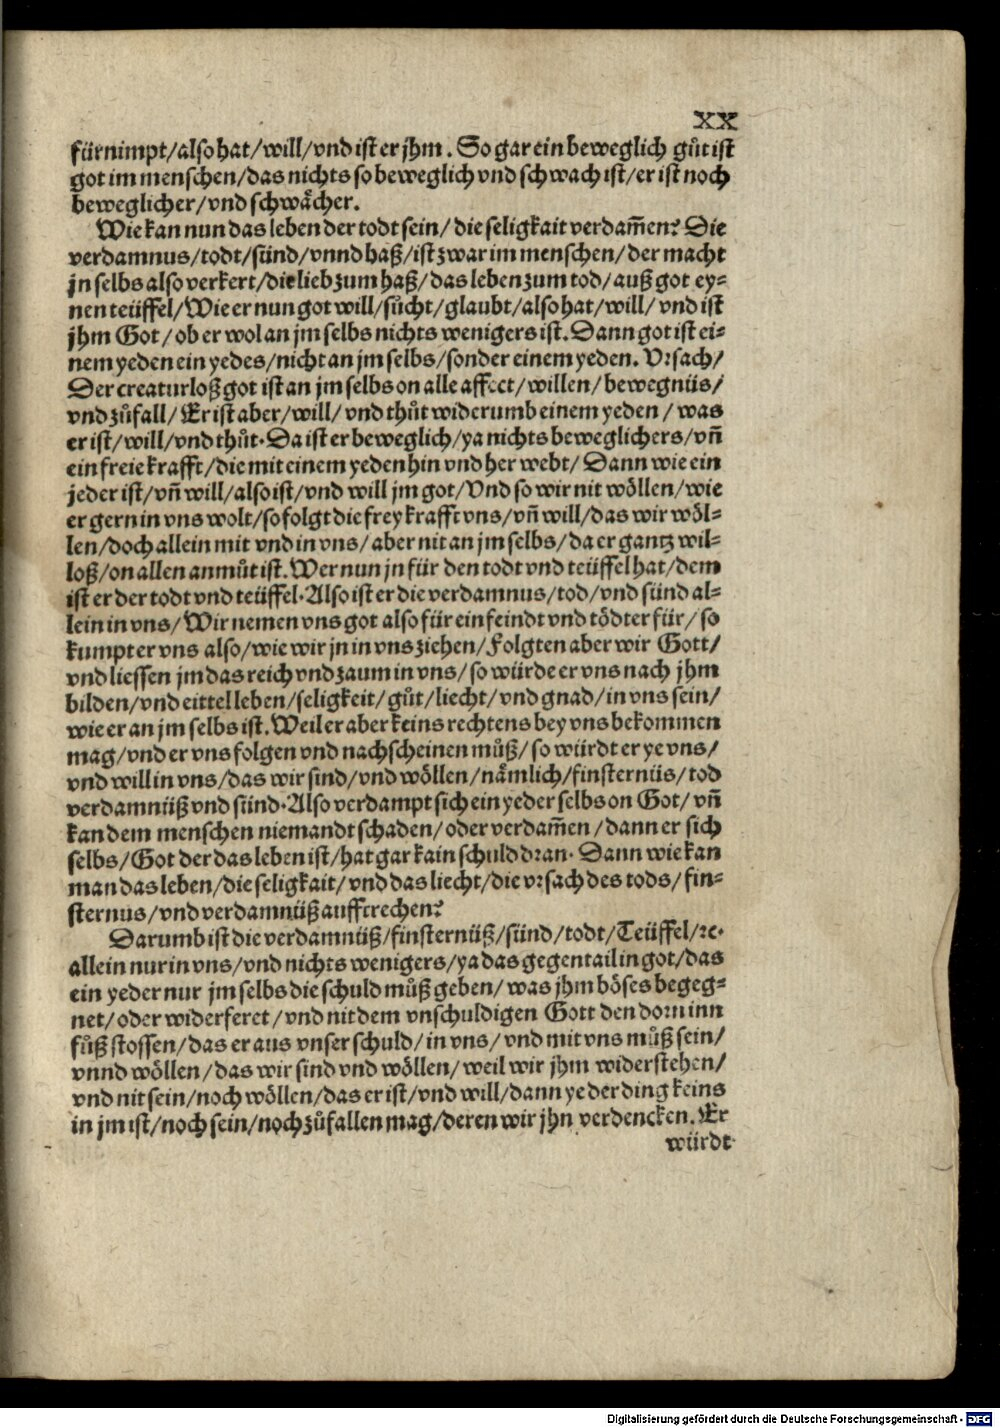 XX
fürnimpt/also hat/will/vnd ist er jhm. So gar ein beweglich gůt ist
got im menschen/das nichts so beweglich vnd schwach ist/er ist noch
beweglicher/vnd schwächer.
Wie kan nun das leben der todt sein/die seligkait verdam̄en? Die
verdamnus/todt/sünd/vnnd haß/ist zwar im menschen/der macht
jn selbs also verkert/die lieb zum haß/das leben zum tod/auß got ey-
nen teüffel/Wie er nun got will/sůcht/glaubt/also hat/will/vnd ist
jhm Got/ob er wol an jm selbs nichts wenigers ist. Dann got ist ei-
nem yeden ein yedes/nicht an jm selbs/sonder einem yeden. Vrsach/
Der creaturloß got ist an jm selbs on alle affect/willen/bewegnüs/
vnd zůfall/Er ist aber/will/vnd thůt widerumb einem yeden/was
er ist/will/vnd thůt. Da ist er beweglich/ya nichts beweglichers/vn̄
ein freie krafft/die mit einem yeden hin vnd her webt/Dann wie ein
jeder ist/vn̄ will/also ist/vnd will jm got/Vnd so wir nit wöllen/wie
er gern in vns wolt/so folgt die frey krafft vns/vn̄ will/das wir wöl-
len/doch allein mit vnd in vns/aber nit an jm selbs/da er gantz wil-
loß/on allen anmůt ist. Wer nun jn für den todt vnd teüffel hat/dem
ist er der todt vnd teüffel. Also ist er die verdamnus/tod/vnd sünd al-
lein in vns/Wir nemen vns got also für ein feindt vnd tödter für/so
kumpt er vns also/wie wir jn in vns ziehen/Folgten aber wir Gott/
vnd liessen jm das reich vnd zaum in vns/so würde er vns nach jhm
bilden/vnd eittel leben/seligkeit/gůt/liecht/vnd gnad/in vns sein/
wie er an jm selbs ist. Weil er aber keins rechtens bey vns bekommen
mag/vnd er vns folgen vnd nachscheinen můß/so würdt er ye vns/
vnd will in vns/das wir sind/vnd wöllen/nämlich/finsternüs/tod
verdamnüß vnd sünd. Also verdampt sich ein yeder selbs on Got/vn̄
kan dem menschen niemandt schaden/oder verdam̄en/dann er sich
selbs/Got der das leben ist/hat gar kain schuld dran. Dann wie kan
man das leben/die seligkait/vnd das liecht/die vrsach des tods/fin-
sternus/vnd verdamnüß aufftrechen?
Darumb ist die verdamnüß/finsternüß/sünd/todt/Teüffel/ꝛc.
allein nur in vns/vnd nichts wenigers/ya das gegentail in got/das
ein yeder nur jm selbs die schuld můß geben/was jhm böses begeg-
net/oder widerferet/vnd nit dem vnschuldigen Gott den dorn inn
fůß stossen/das er aus vnser schuld/in vns/vnd mit vns můß sein/
vnnd wöllen/das wir sind vnd wöllen/weil wir jhm widerstehen/
vnd nit sein/noch wöllen/das er ist/vnd will/dann yeder ding keins
in jm ist/noch sein/noch zůfallen mag/deren wir jhn verdencken. Er
würdt
Digitalisierung gefördert durch die Deutsche Forschungsgemeinschaft - DFG